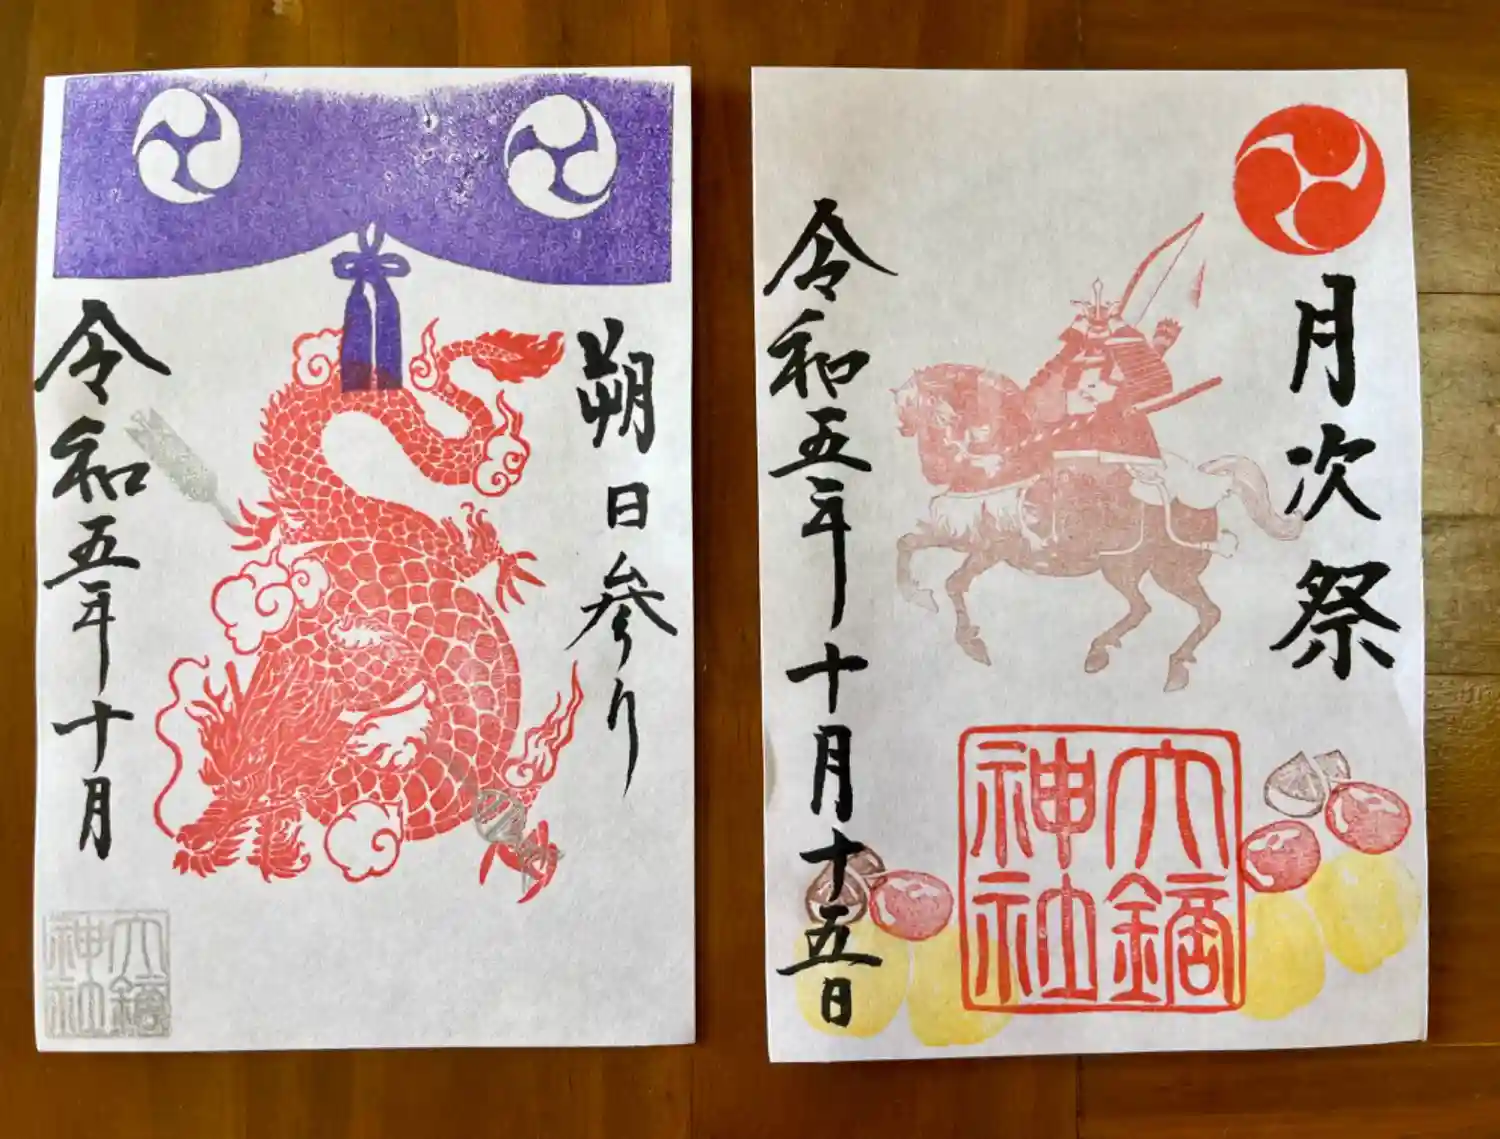 朔日参り
令和五年十月
六鏑
神社
月次祭
令和五年十月十五日
六鏑
神社